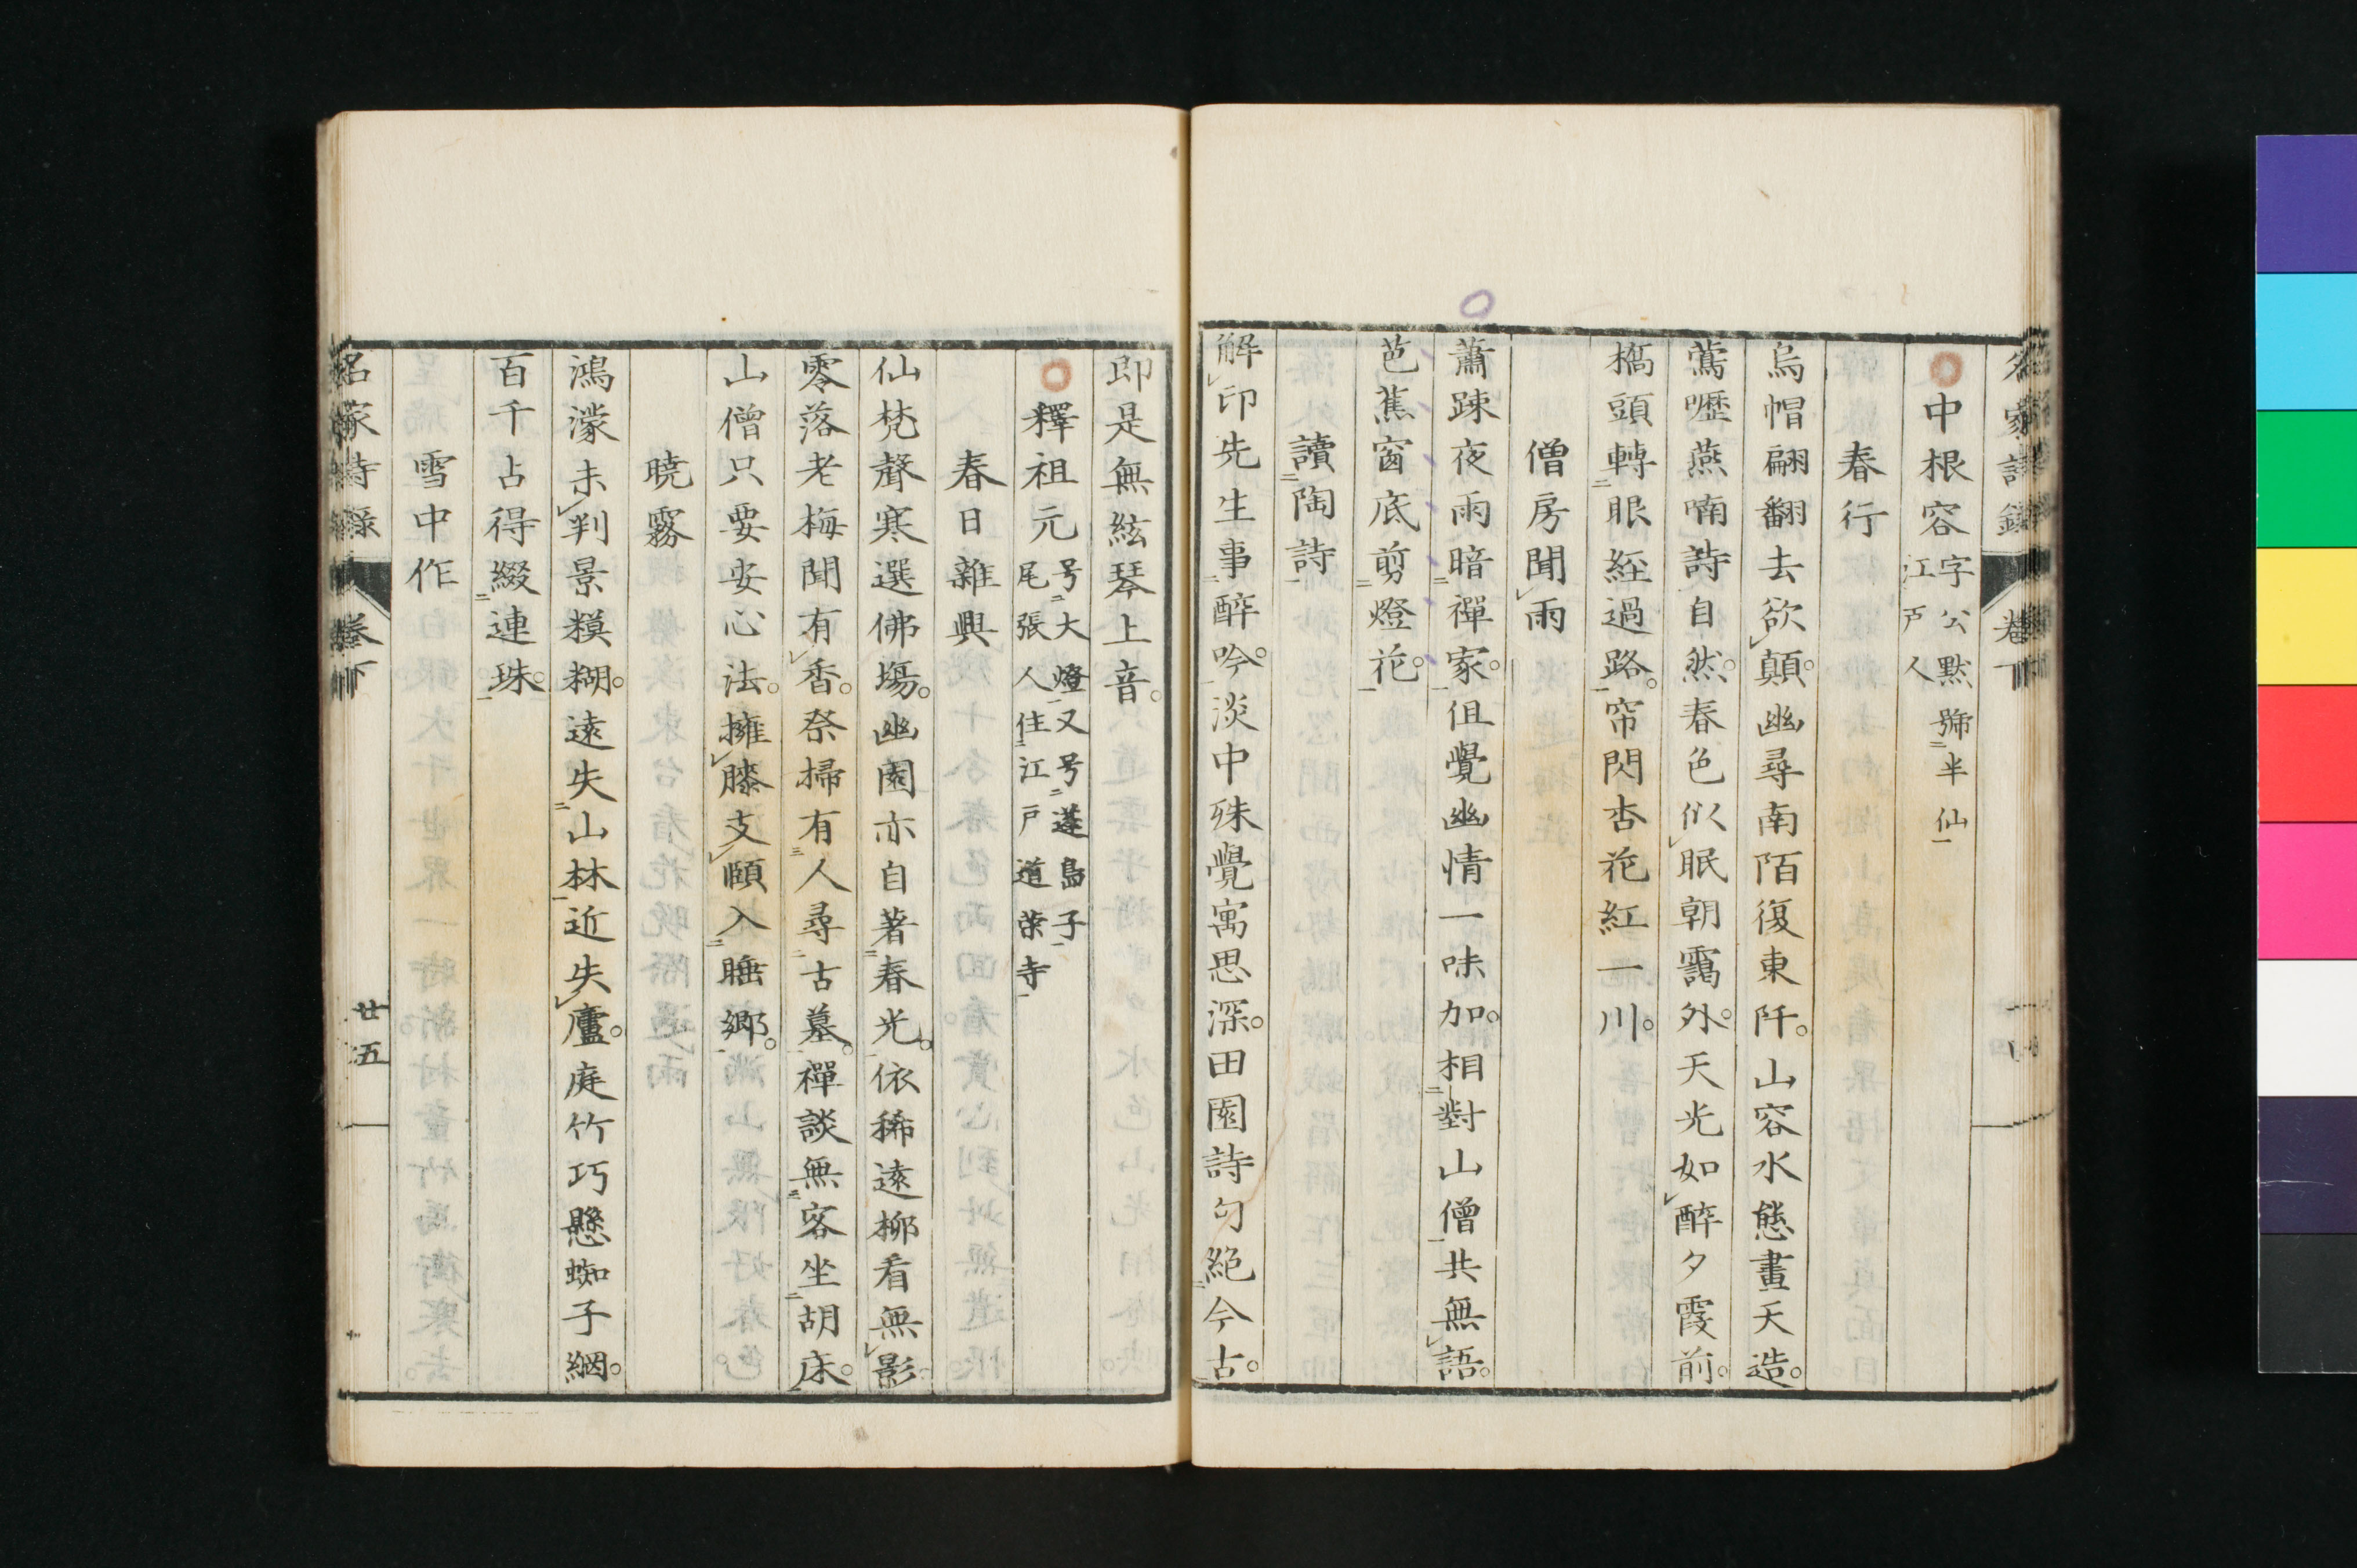 中根容 字公默號半仙江戸人
春行
烏帽翩翻去欲顛。幽尋南陌復東阡。山容水態畫天造。
鶯嚦燕喃詩自然。春色似眠朝靄外。天光如醉夕霞前。
橋頭轉眼經過路。帘閃杏花紅一川。
僧房聞雨
蕭踈夜雨暗禪家。但覺幽情一味加。相對山僧共無語。
芭蕉窗底剪燈花。
讀陶詩
解印先生事醉吟。淡中殊覺寓思深。田園詩句絶今古。
即是無絃琴上音。
釋祖元 号大燈又号蓬島子尾張人住江戸道榮寺
春日雜興
仙梵聲寒選佛塲。幽園亦自著春光。依稀遠柳看無影
零落老梅聞有香。祭掃有人尋古墓。禪談無客坐胡床。
山僧只要安心法。擁膝支頤入睡郷。
曉霧
鴻濛未判景糢糊。遠失山林近失廬。庭竹巧懸蜘子網。
百千占得綴連珠。
雪中作
名家詩録 卷下 廿五